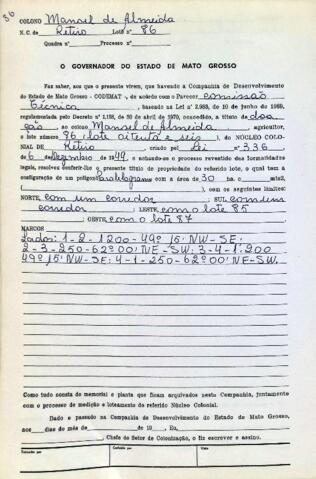 86
COLONO Manoel de Almeida
N. C. de Retiro Lote nº 86
Quadra nº Processo nº
O GOVERNADOR DO ESTADO DE MATO GROSSO
Faz saber, aos que o presente virem, que havendo a Companhia de Desenvolvimento
do Estado de Mato Grosso - CODEMAT -, de acordo com o Parecer comissão
Técnica, baseado na Lei nº 2.983, de 10 de junho de 1969,
regulamentada pelo Decreto nº 1.138, de 30 de abril de 1970, concedido, a título de doa
ção ao colono Manoel de Almeida, agricultor,
o lote número 86 (lote oitenta e seis), do NÚCLEO COLO-
NIAL DE Retiro, criado pel Lei nº 336
de 6 de Dezembro de 1949, e achando-se o processo revestido das formalidades
legais, resolveu conferir-lhe o presente título de propriedade do referido lote, o qual tem a
configuração de um polígono Paralelogramo com a área de 30 ha. e mts2,
com os seguintes limites:
NORTE, com um corredor; SUL com um
corredor; LESTE, com o lote 85
OESTE, com o lote 87
MARCOS
Lados: 1-2-1200-49º 15' NW-SE:
2-3-250-62º 00' NE-SW: 3-4-1.200
49º 15' NW-SE: 4-1-250-62º 00' NE-SW.
Como tudo consta do memorial e planta que ficam arquivados nesta Companhia, juntamente
com o processo de medição e loteamento do referido Núcleo Colonial.
Dado e passado na Companhia de Desenvolvimento do Estado de Mato Grosso,
aos dias do mês de de 19 , Eu,
, Chefe do Setor de Colonização, o fiz escrever e assino.